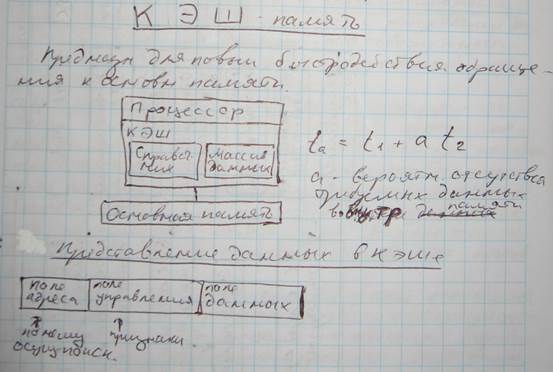 КЭШ - память
Предназн для повыш быстродействия обраще-
ния к основн памяти.
Процессор
КЭШ
Справоч-
ник
Массив
данных
Основная память
tₐ = t₁ + a t₂
a - вероятн отсутствия
данных
памяти
Представление данных в КЭШе
поле
адреса
поле
управления
поле
данных
признаки